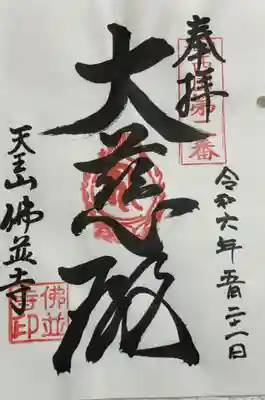 奉拝
第一番
令和六年五月二十一日
大慈殿
天王山佛並寺
佛並
寺印